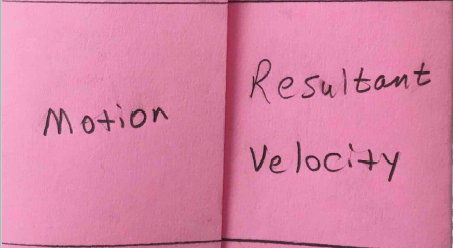 Motion
Resultant
Velocity